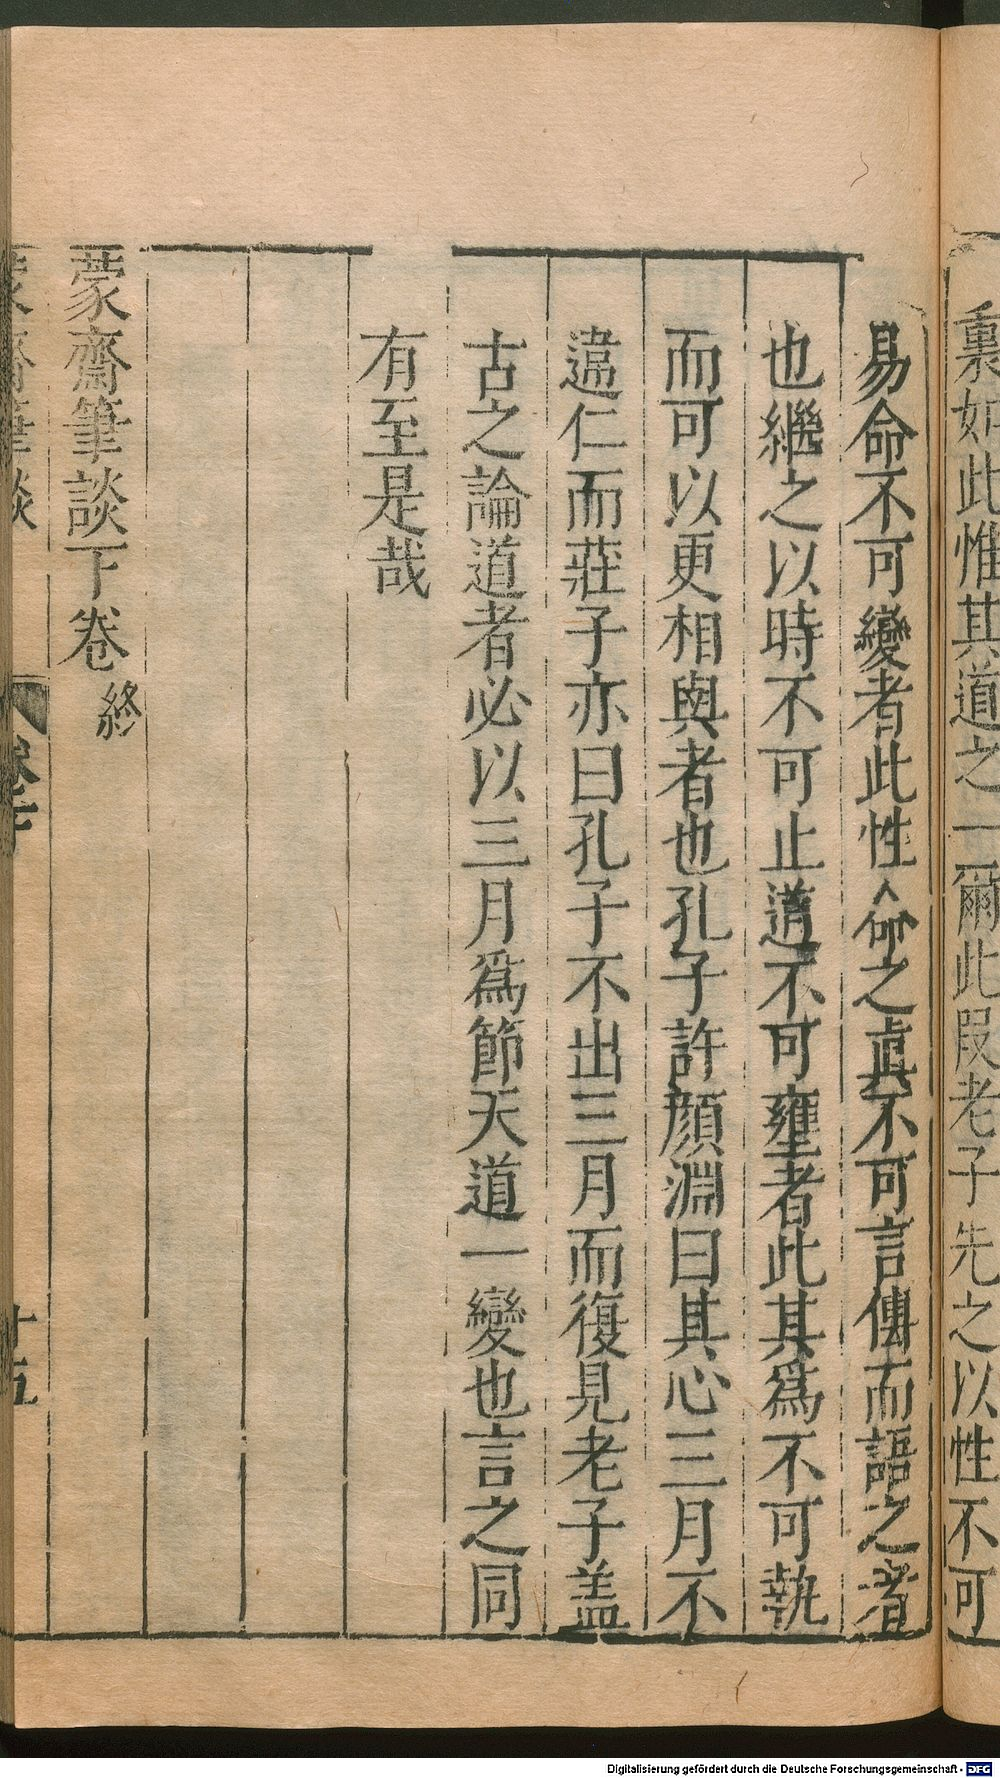 裏如此惟其道之一爾此叚老子先之以性不可
易命不可變者此性命之眞不可言傳而語之者
也繼之以時不可止道不可壅者此其爲不可執
而可以更相與者也孔子許顔淵曰其心三月不
違仁而莊子亦曰孔子不出三月而復見老子盖
古之論道者必以三月爲節天道一變也言之同
有至是哉
蒙齋筆談下卷終
蒙齋筆談
十五
Digitalisierung gefördert durch die Deutsche Forschungsgemeinschaft - DFG